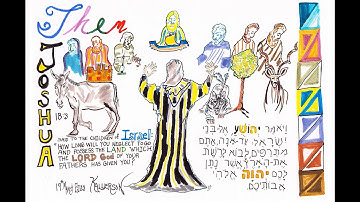 Then
JOSHUA
18:3
SAID TO THE CHILDREN OF ISRAEL:
"HOW LONG WILL YOU NEGLECT TO GO
AND POSSESS THE LAND WHICH
THE LORD GOD OF YOUR
FATHERS HAS GIVEN YOU?"
ויאמר יהושע אל־בני
ישראל עד־אנה אתם
מתרפים לבוא לרשת
את־הארץ אשר נתן
לכם יהוה אלהי
אבותיכם